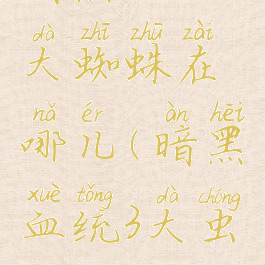 dà zhī zhū zài
大蜘蛛在
nǎ ér àn hēi
哪儿(暗黑
xuè tǒng dà chóng
血统3大虫